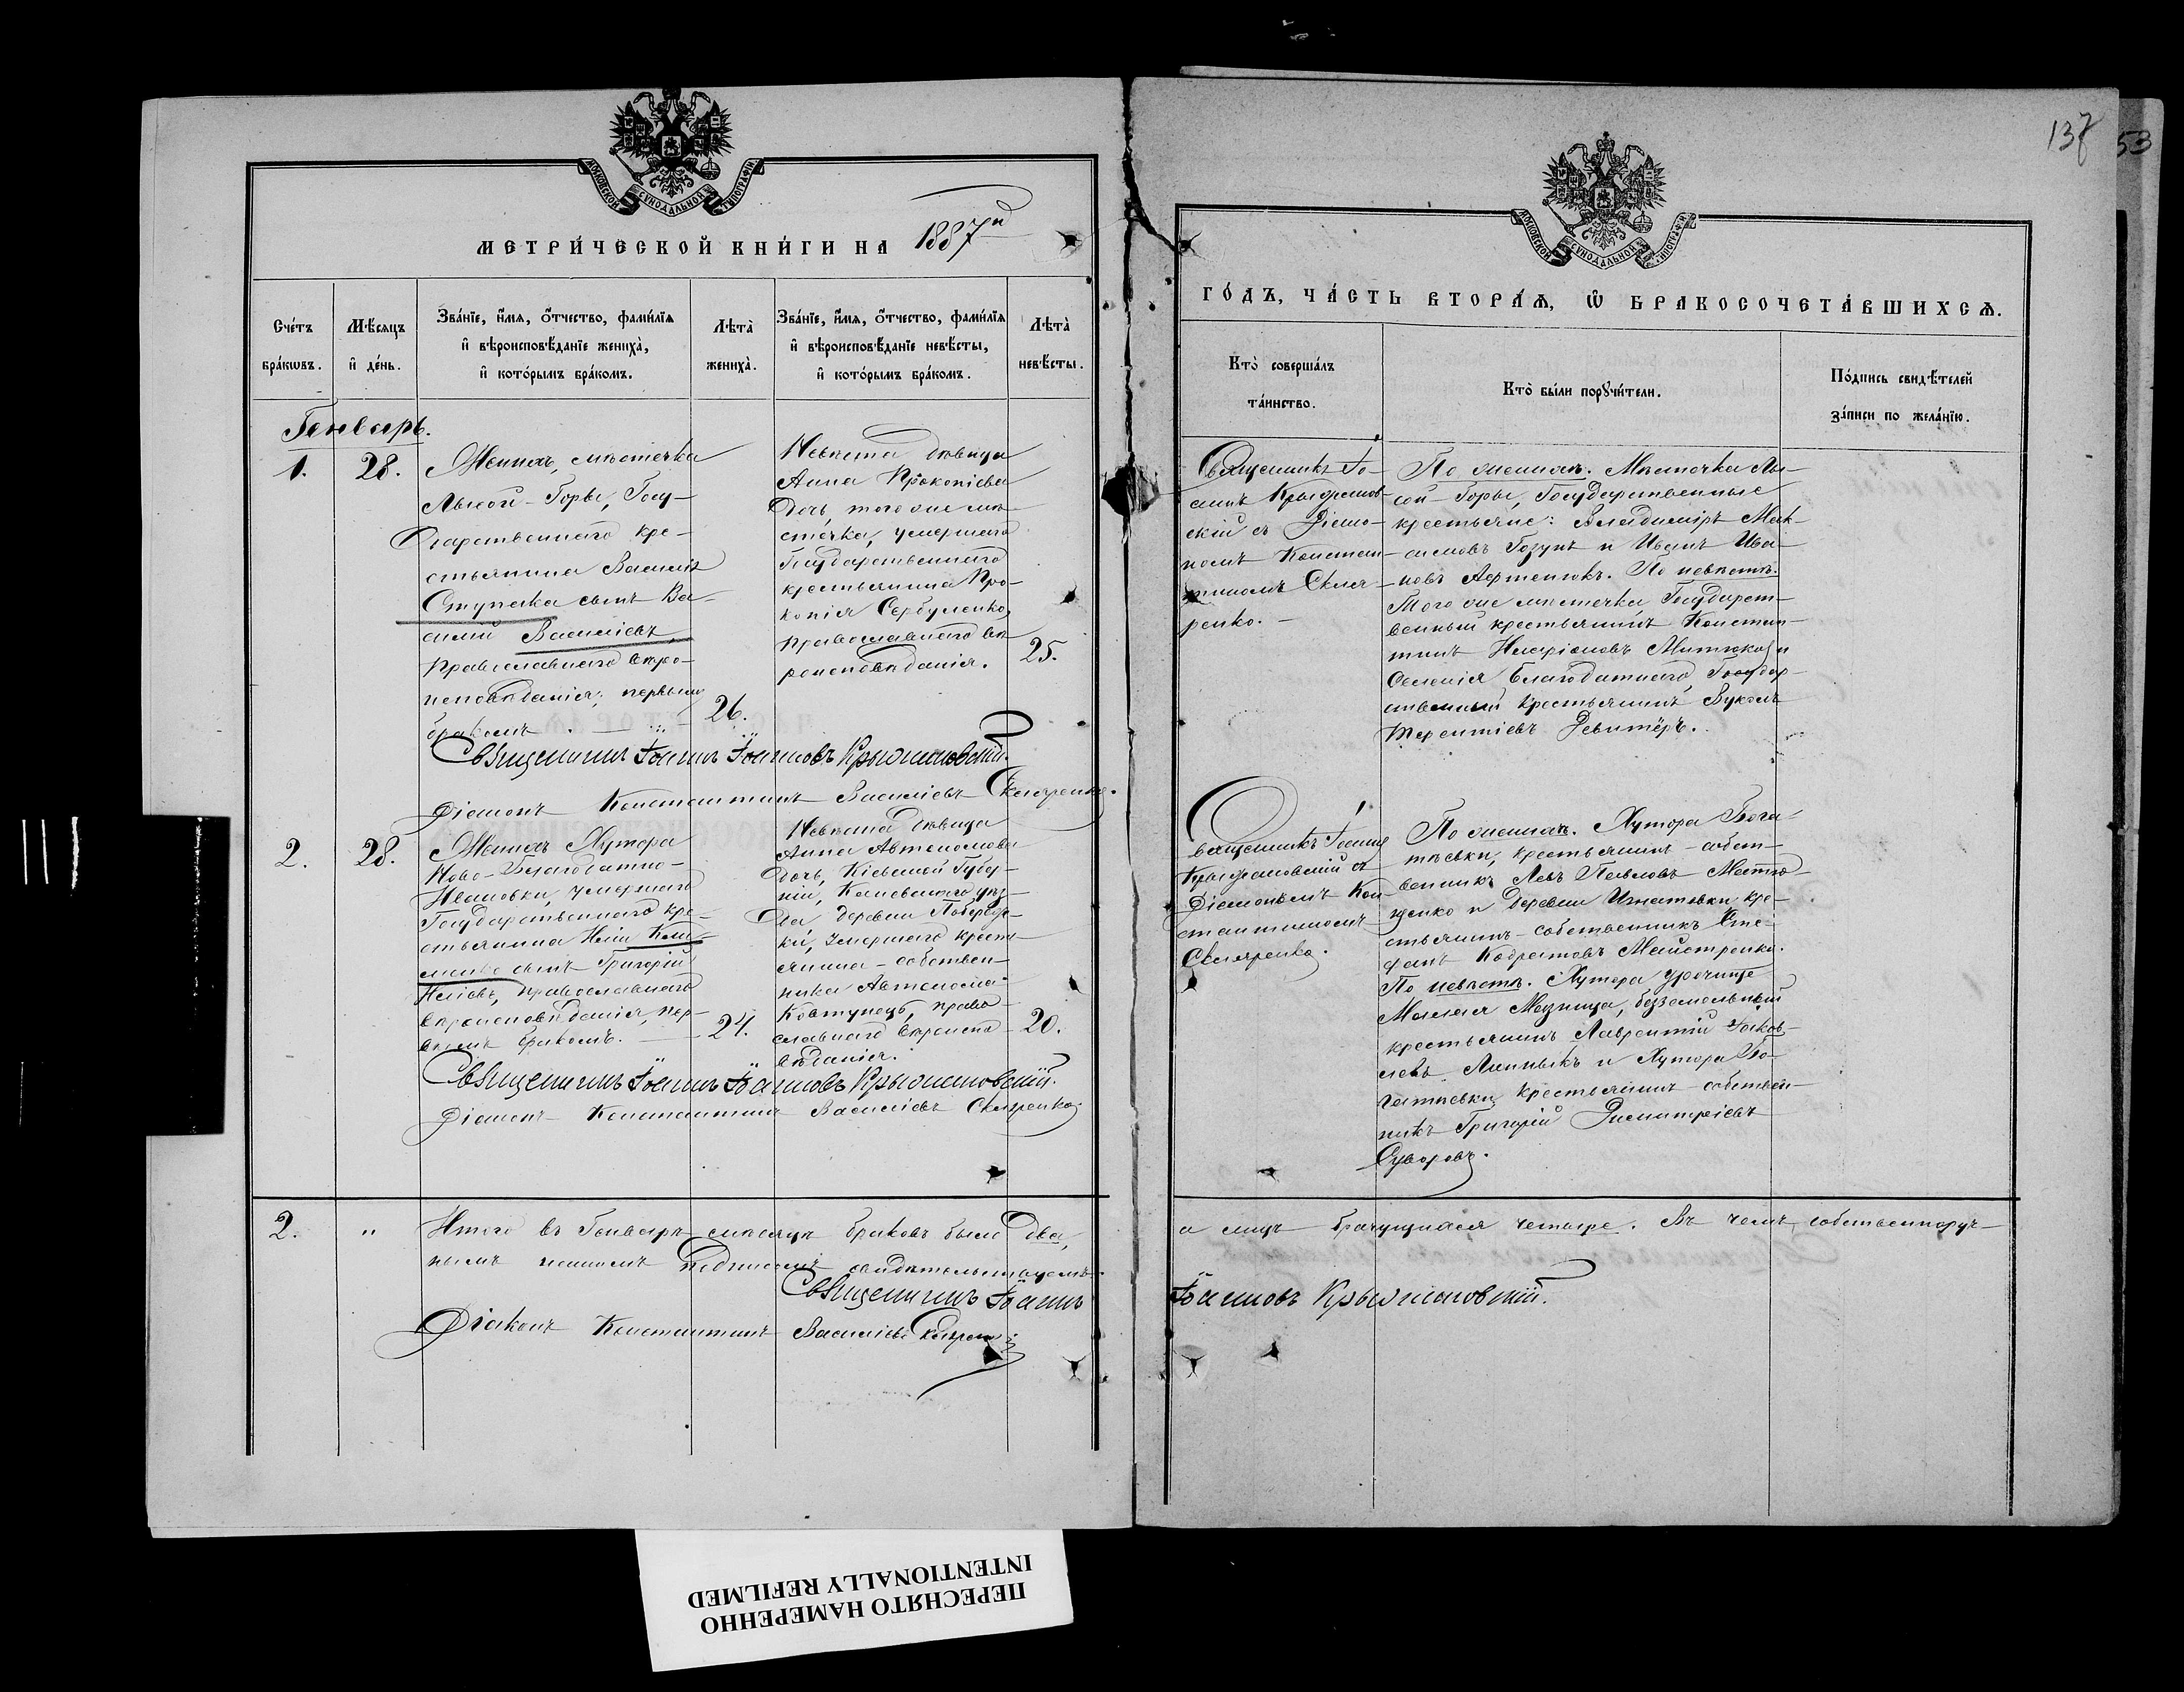 МОСКОВСКОЙ СУНОДАЛЬНОЙ ТИПОГРАФІИ
МЕТРИ́ЧЕСКОЙ КНИ́ГИ НА 1887й
Сче́тъ бра́кѡвъ.
Мѣ́сяцъ и҆ де́нь.
Зва́нїе, и҆́мя, ѻ҆́тчество, фами́лїя
и҆ вѣроисповѣ́данїе жениха̀,
и҆ кото́рымъ бра́комъ.
Лѣта̀ жениха̀.
Зва́нїе, и҆́мя, ѻ҆́тчество, фами́лїя
и҆ вѣроисповѣ́данїе невѣ́сты,
и҆ кото́рымъ бра́комъ.
Лѣта̀ невѣ́сты.
Генварь.
1.
28.
Женихъ, мѣстечка
Лысой-Горы, Госу-
дарственнаго кре-
стьянина Василія
Ступака сынъ Ва-
силій Василіевъ,
православнаго вѣро-
исповѣданія; первымъ
бракомъ.
26.
Невѣста дѣвица
Анна Прокопіева
дочь, того же мѣ-
стечка, умершаго
Государственнаго
крестьянина Про-
копія Сербуленко,
православнаго вѣ-
роисповѣданія.
25.
Священникъ Іоаннъ Іоанновъ Крыжановскій.
Діаконъ Константинъ Василіевъ Скляренко.
2.
28.
Женихъ Хутора
Ново-Благодатно-
Ивановки, умершаго
Государственнаго кре-
стьянина Иліи
сынъ Григорій
Иліевъ, православнаго
вѣроисповѣданія, пер-
вымъ бракомъ.
24.
Невѣста дѣвица
Анна Автономова
дочь, Кіевской Губер-
ніи, Каневскаго уѣз-
да деревни
умершаго крест-
янина-собствен-
ника Автонома
Ковтунецъ, право-
славнаго вѣроиспо-
вѣданія.
20.
Священникъ Іоаннъ Іоанновъ Крыжановскій.
Діаконъ Константинъ Василіевъ Скляренко
2. "
Итого въ Генварѣ мѣсяцѣ браковъ было два,
нымъ нашимъ подписомъ свидѣтельствуемъ.
Священникъ Іоаннъ
Діаконъ Константинъ Василіевъ Скляренко
137
53
МОСКОВСКОЙ СУНОДАЛЬНОЙ ТИПОГРАФІИ
ГО́ДЪ, ЧА́СТЬ ВТОРА́Я, Ѡ҆ БРАКОСОЧЕТА́ВШИХСЯ.
Кто̀ соверша́лъ
та́инство.
Кто̀ бы́ли порꙋчи́тели.
По́дпись свидѣ́телей
за́писи по жела́нїю.
Священникъ Іо-
аннъ Крыжанов-
скій съ Діако-
номъ Констан-
тиномъ Скля-
ренко.
По женихѣ. Мѣстечка Лы-
сой-Горы, Государственные
крестьяне: Владиміръ Мак-
симовъ Гозунъ и Иванъ Ива-
новъ Артентокъ. По невѣстѣ.
Того же мѣстечка, Государст-
венный крестьянинъ Констан-
тинъ Митюкъ и
Селенія Благодатнаго, Государ-
ственный крестьянинъ Вуколъ
Терентіевъ
Священникъ Іоаннъ
Крыжановскій съ
Діакономъ Кон-
стантиномъ
Скляренко.
По женихѣ. Хутора Бога-
тѣевки, крестьянинъ-собст-
венникъ Левъ Павловъ
и деревни Игнатовки кре-
стьянинъ-собственникъ Сте-
фанъ Кодратовъ Майстренко.
По невѣстѣ. Хутора урочище
Малая Мазница, безземельный
крестьянинъ Лаврентій Іаков-
левъ и Хутора Бо-
гатѣевки, крестьянинъ-собствен-
никъ Григорій Димитріевъ
Суворовъ.
а лицъ брачущихся четыре. Въ чемъ, собственноруч-
Іоанновъ Крыжановскій.
ПЕРЕСНЯТО НАМЕРЕННО
INTENTIONALLY REFILMED